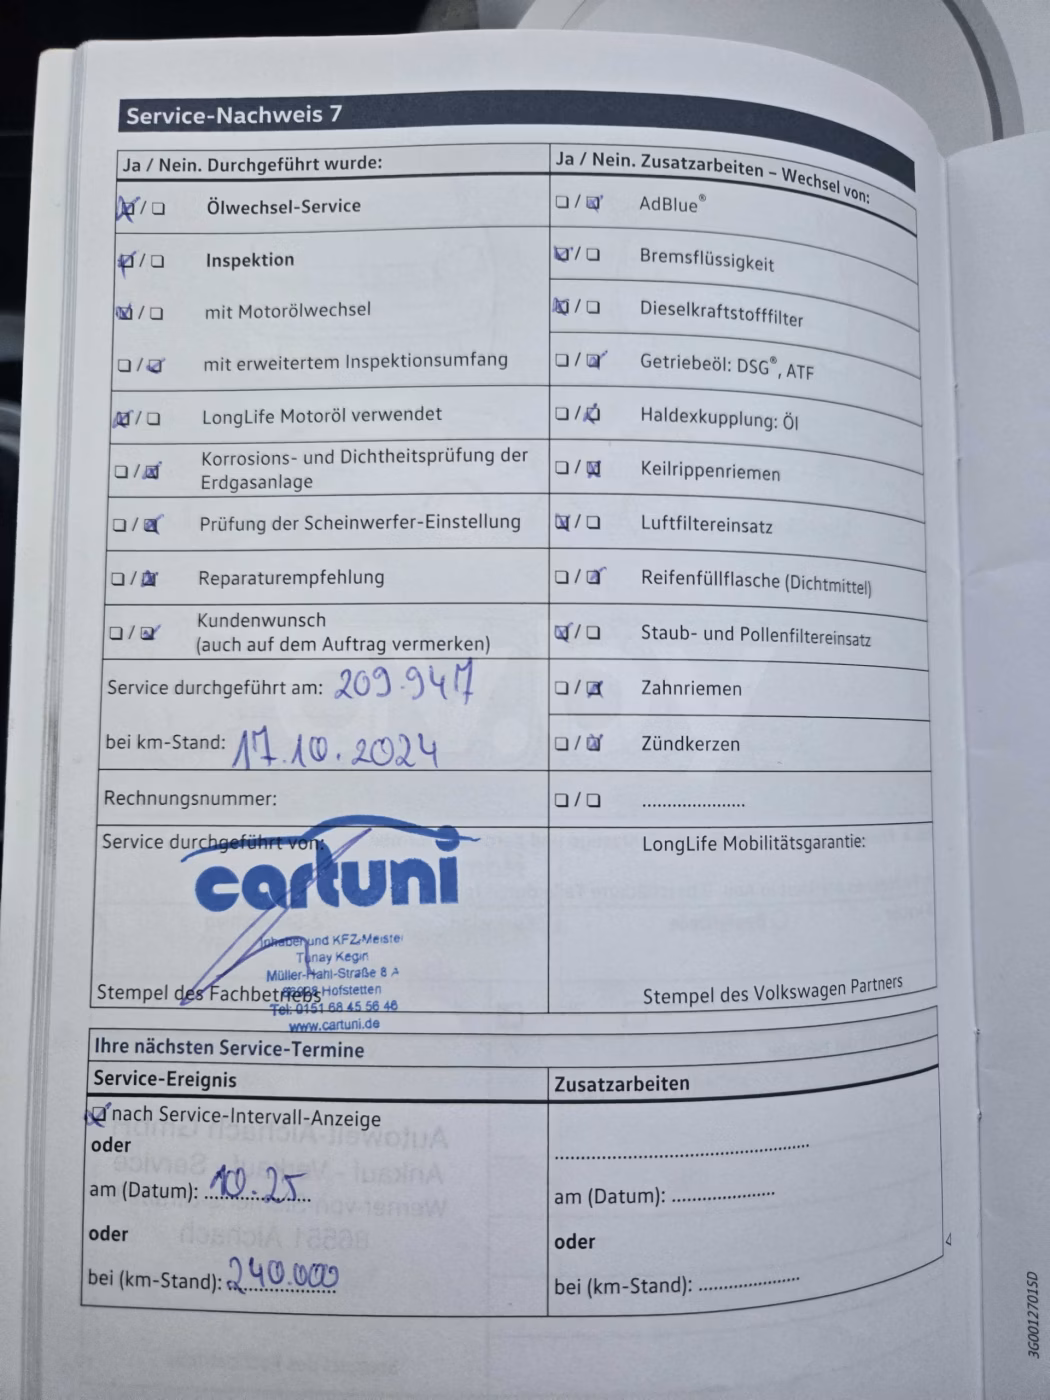 Service-Nachweis 7
Ja / Nein. Durchgeführt wurde:
Ölwechsel-Service
Inspektion
mit Motorölwechsel
mit erweitertem Inspektionsumfang
LongLife Motoröl verwendet
Korrosions- und Dichtheitsprüfung der
Erdgasanlage
Prüfung der Scheinwerfer-Einstellung
Reparaturempfehlung
Kundenwunsch
(auch auf dem Auftrag vermerken)
Service durchgeführt am: 209.947
bei km-Stand: 17.10.2024
Rechnungsnummer:
Service durchgeführt von:
cartuni
Inhaber und KFZ-Meister
Tunay Kegin
Müller-Hahl-Straße 8 A
Hofstetten
Tel: 0151 68 45 56 46
www.cartuni.de
Stempel des Fachbetriebs
Ja / Nein. Zusatzarbeiten – Wechsel von:
AdBlue®
Bremsflüssigkeit
Dieselkraftstofffilter
Getriebeöl: DSG®, ATF
Haldexkupplung: Öl
Keilrippenriemen
Luftfiltereinsatz
Reifenfüllflasche (Dichtmittel)
Staub- und Pollenfiltereinsatz
Zahnriemen
Zündkerzen
.....................
LongLife Mobilitätsgarantie:
Stempel des Volkswagen Partners
Ihre nächsten Service-Termine
Service-Ereignis
nach Service-Intervall-Anzeige
oder
am (Datum): 10.25
oder
bei (km-Stand): 240.000
Zusatzarbeiten
am (Datum): ....................
oder
bei (km-Stand): ....................
3G0012701SD